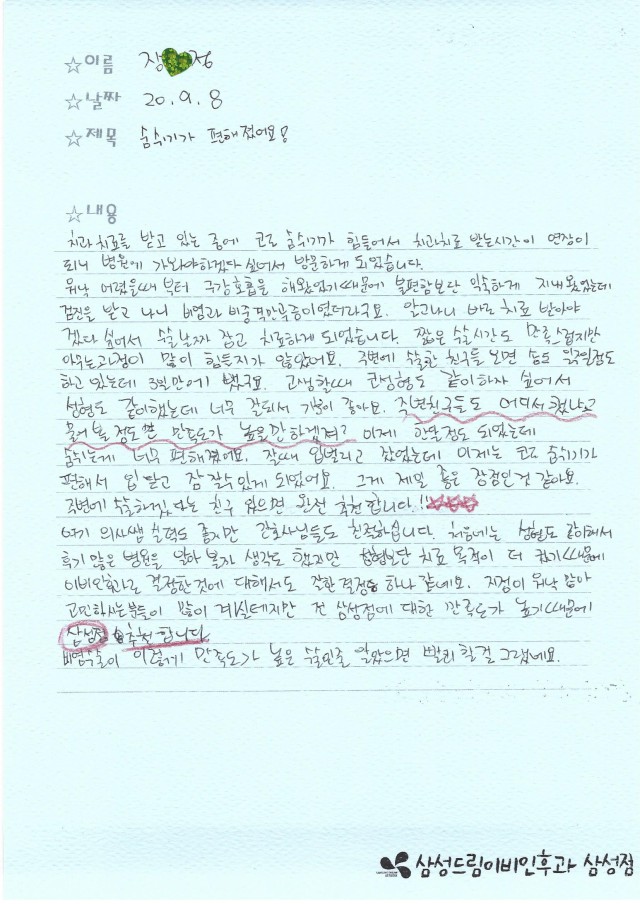 ☆이름 장 정
☆날짜 20.9.8
☆제목 숨쉬기가 편해졌어요!
☆내용
치과치료를 받고 있는 중에 코로 숨쉬기가 힘들어서 치과치료 받는시간이 연장이
되니 병원에 가봐야하겠다 싶어서 방문하게 되었습니다.
워낙 어렸을때 부터 구강호흡을 해왔었기때문에 불편함보단 익숙하게 지내왔었는데
검진을 받고 나니 비염과 비중격만곡증이였더라구요. 알고나니 바로 치료 받아야
겠다 싶어서 수술날짜 잡고 치료하게 되었습니다. 짧은 수술시간도 만족스럽지만
아무는과정이 많이 힘들지가 않았어요. 주변에 수술한 친구들 보면 솜도 일주일정도
하고 있는데 3일만에 뺐구요. 고생할때 코성형도 같이하자 싶어서
성형도 같이했는데 너무 잘되서 기분이 좋아요. 직현친구들도 어디서 했냐고
물어볼 정도면 만족도가 높을만 하겠죠? 이제 한달정도 되었는데
숨쉬는게 너무 편해졌어요. 잘때 입벌리고 잤었는데 이제는 코로 숨쉬기가
편해서 입 닫고 잠 잘수있게 되었어요. 그게 제일 좋은 장점인것 같아요.
주변에 수술하겠다는 친구 있으면 완전 추천합니다!! ☆☆☆
여기 의사쌤 실력도 좋지만 간호사님들도 친절하십니다. 처음에는 성형도 같이해서
후기 많은 병원을 알아 볼까 생각도 했지만 성형보단 치료 목적이 더 컸기때문에
이비인후과로 결정한것에 대해서도 잘한 결정중 하나 같네요. 지점이 워낙 많아
고민하시는분들이 많이 계실테지만 전 삼성점에 대한 만족도가 높기때문에
삼성점 추천합니다
비염수술이 이렇게 만족도가 높은 수술인줄 알았으면 빨리 할걸 그랬네요.
삼성드림이비인후과 삼성점